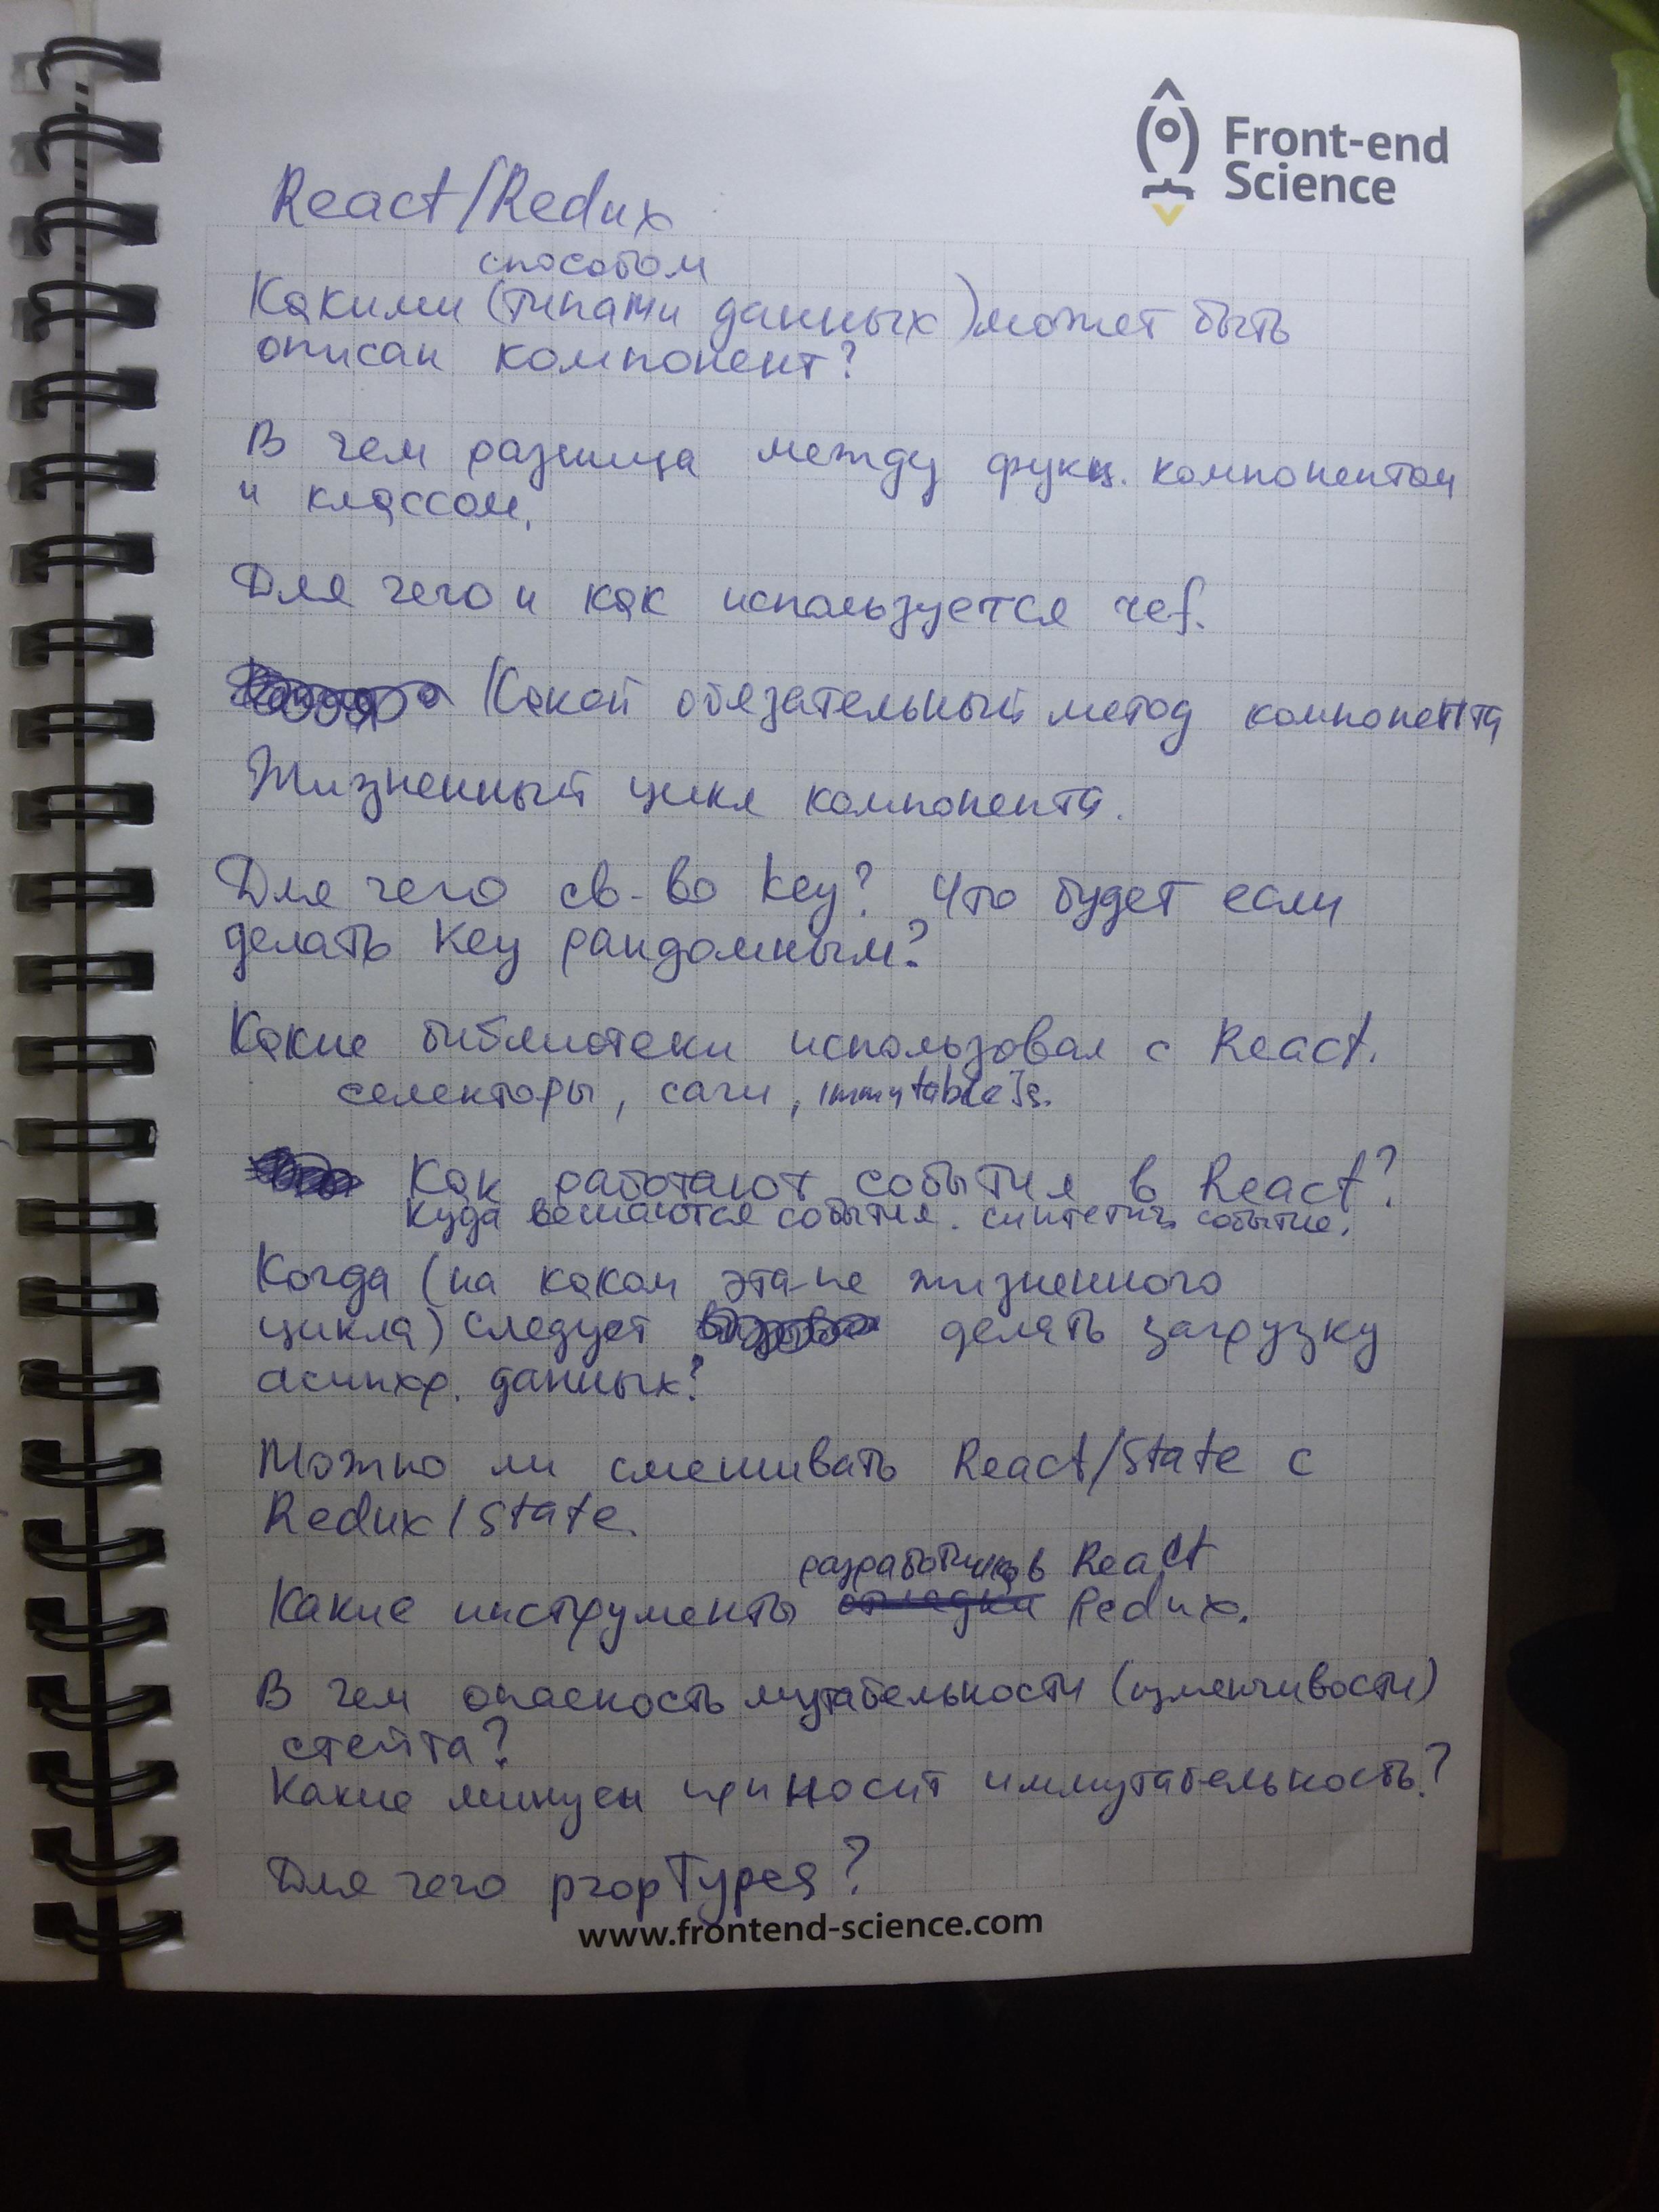 Front-end
Science
React/Redux
способом
Какими (типами данных) может быть
описан компонент?
В чем разница между функц. компонентом
и классом.
Для чего и как используется ref.
Какой обязательный метод компонента
Жизненный цикл компонента.
Для чего св-во key? Что будет если
делать key рандомным?
Какие библиотеки использовал с React.
селекторы, саги, immutable Js.
Как работают события в React?
куда вешаются события. синтетич. событие.
Когда (на каком этапе жизненного
цикла) следует делать загрузку
асинхр. данных?
Можно ли смешивать React/State с
Redux/State.
разработчика в React
Какие инструменты отладки Redux.
В чем опасность мутабельности (изменчивости)
стейта?
Какие минусы приносит иммутабельность?
Для чего propTypes?
www.frontend-science.com